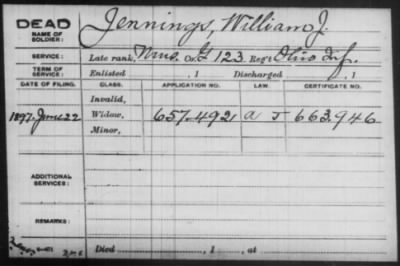 DEAD
NAME OF SOLDIER: Jennings, William J.
SERVICE: Late rank, Mus. Co. G 123 Reg't Ohio Inf.
TERM OF SERVICE: Enlisted , 1 Discharged , 1
DATE OF FILING. CLASS. APPLICATION NO. LAW. CERTIFICATE NO.
Invalid,
1897. June 22 Widow, 657.492 a J 663.946
Minor,
ADDITIONAL SERVICES:
REMARKS:
Died , 1 , at